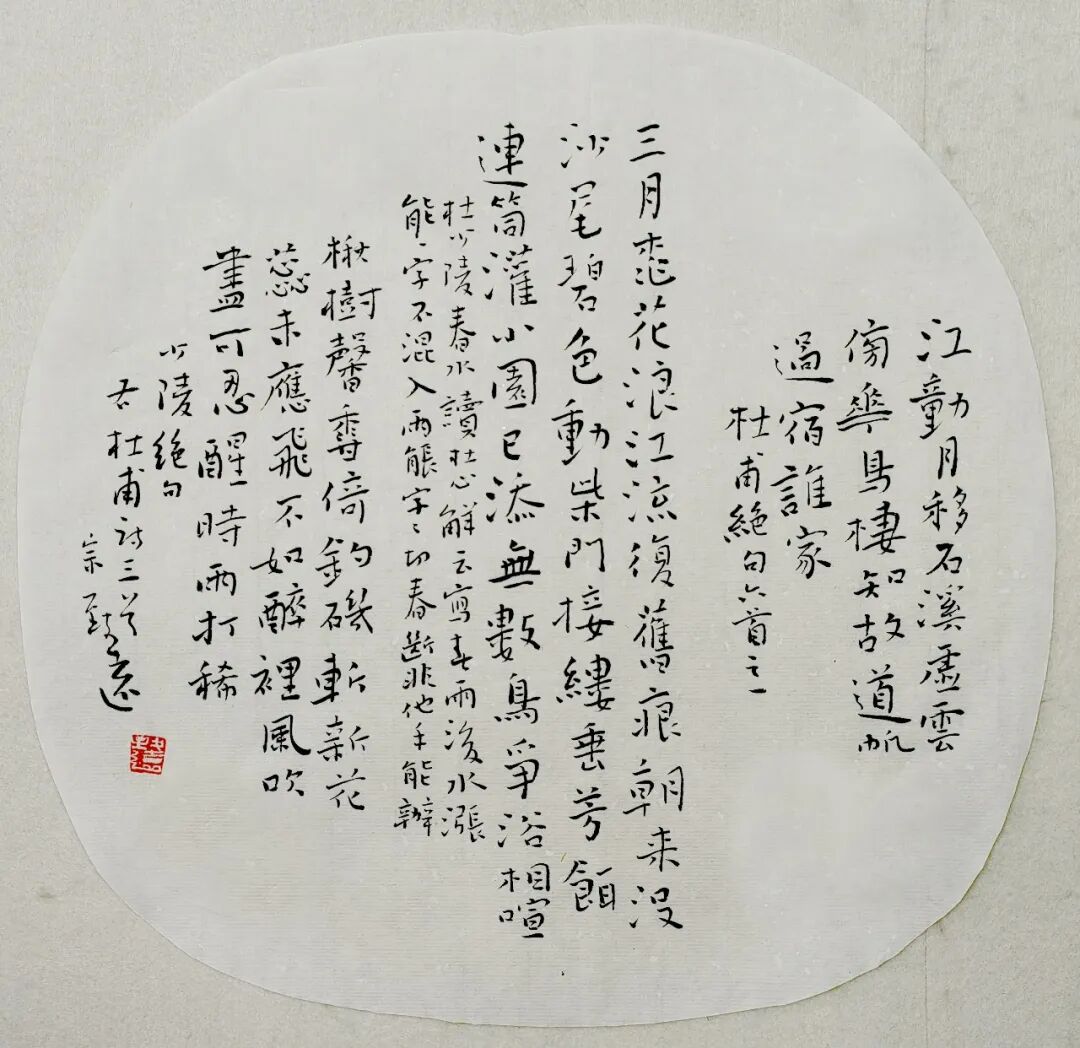 江動月移石溪虛雲
傍華鳥棲知故道帆
過宿誰家
杜甫絕句六首之一
三月桃花浪江流復舊痕朝来沒
沙尾碧色動柴門接縷垂芳餌
連筒灌小園已添無數鳥爭浴相喧
杜少陵春水讀杜心解云寫春雨後水漲
能〻字不混入雨漲字〻切春斷非他手能辦
楸樹馨香倚釣磯斬新花
蕊未應飛不如醉裡風吹
盡可忍醒時雨打稀
少陵絕句
右杜甫詩三首
宗